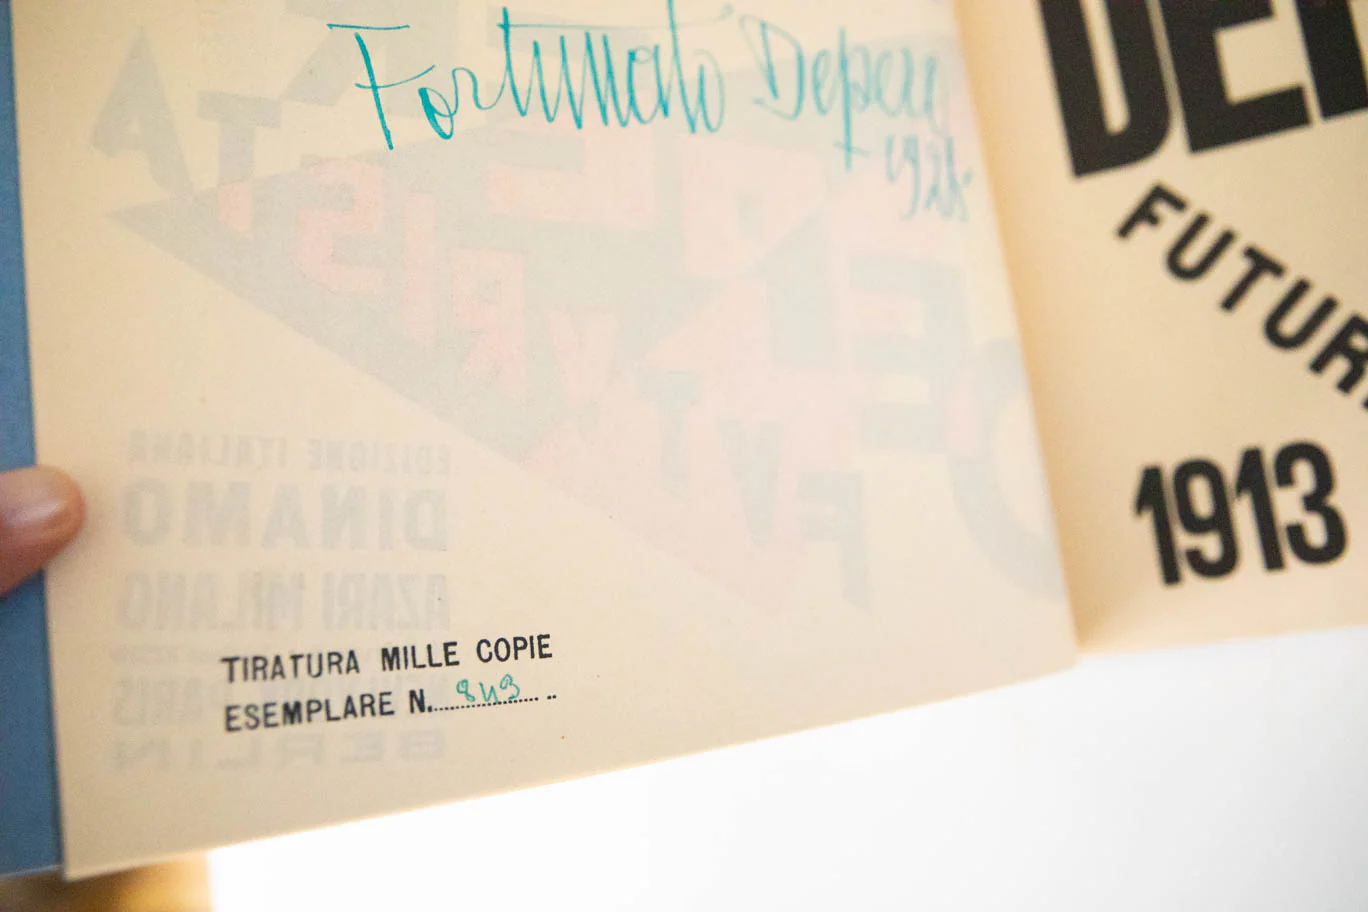 Fortunato Depero
+ 1928.
TIRATURA MILLE COPIE
ESEMPLARE N. 843
DEP
FUTUR
1913
EDIZIONE ITALIANA
DINAMO
AZARI MILANO
PARIS
BERLIN